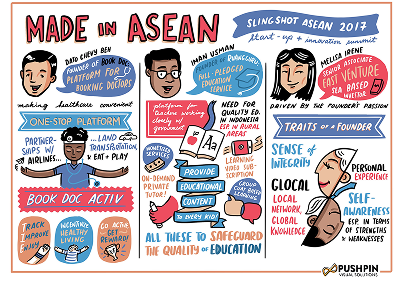 MADE IN ASEAN
SLINGSHOT ASEAN 2017
start-up + innovation summit
DATO CHEVY BEH
FOUNDER OF BOOK DOC
PLATFORM FOR
BOOKING DOCTORS
making healthcare convenient
ONE-STOP PLATFORM
PARTNER-
SHIPS W/
AIRLINES...
... LAND
TRANSPORTATION,
& EAT + PLAY
BOOK DOC ACTIV
TRACK
IMPROVE
ENJOY
INCENTIVIZE
HEALTHY
LIVING
GO ACTIVE
GET
REWARD!
IMAN USMAN
FOUNDER OF RUANGGURU
FULL-FLEDGED
EDUCATION
SERVICE
platform for
teachers working
closely w/
government
NEED FOR
QUALITY ED.
IN INDONESIA
ESP. IN RURAL
AREAS
MONETIZE
SERVICES
ON-DEMAND
PRIVATE
TUTOR!
LEARNING
VIDEO SUB-
SCRIPTION
PROVIDE
EDUCATIONAL
CONTENT
TO EVERY KID!
GROUP
CHAT BASED
LEARNING
ALL THESE TO SAFEGUARD
THE QUALITY OF EDUCATION
MELISA IRENE
SENIOR ASSOCIATE
EAST VENTURE
SEA BASED
INVESTOR
DRIVEN BY THE FOUNDER'S PASSION
TRAITS OF A FOUNDER
SENSE OF
INTEGRITY
PERSONAL
EXPERIENCE
GLOCAL
LOCAL
NETWORK,
GLOBAL
KNOWLEDGE
SELF-
AWARENESS
ESP. IN TERMS
OF STRENGTHS
& WEAKNESSES
PUSHPIN
VISUAL SOLUTIONS